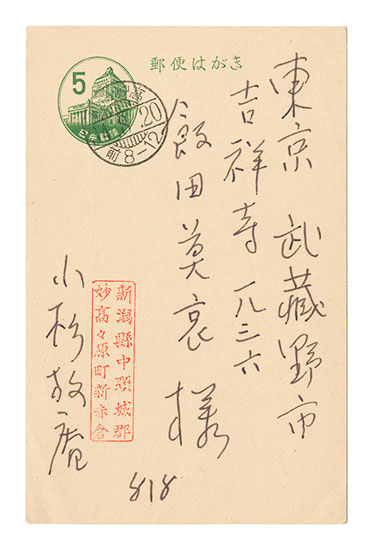 郵便はがき
5
日本郵便
20
前8-12
東京 武藏野市
吉祥寺 一八三六
飯田莫哀 様
新潟縣中頸城郡
妙高々原町新赤倉
小杉放庵
818